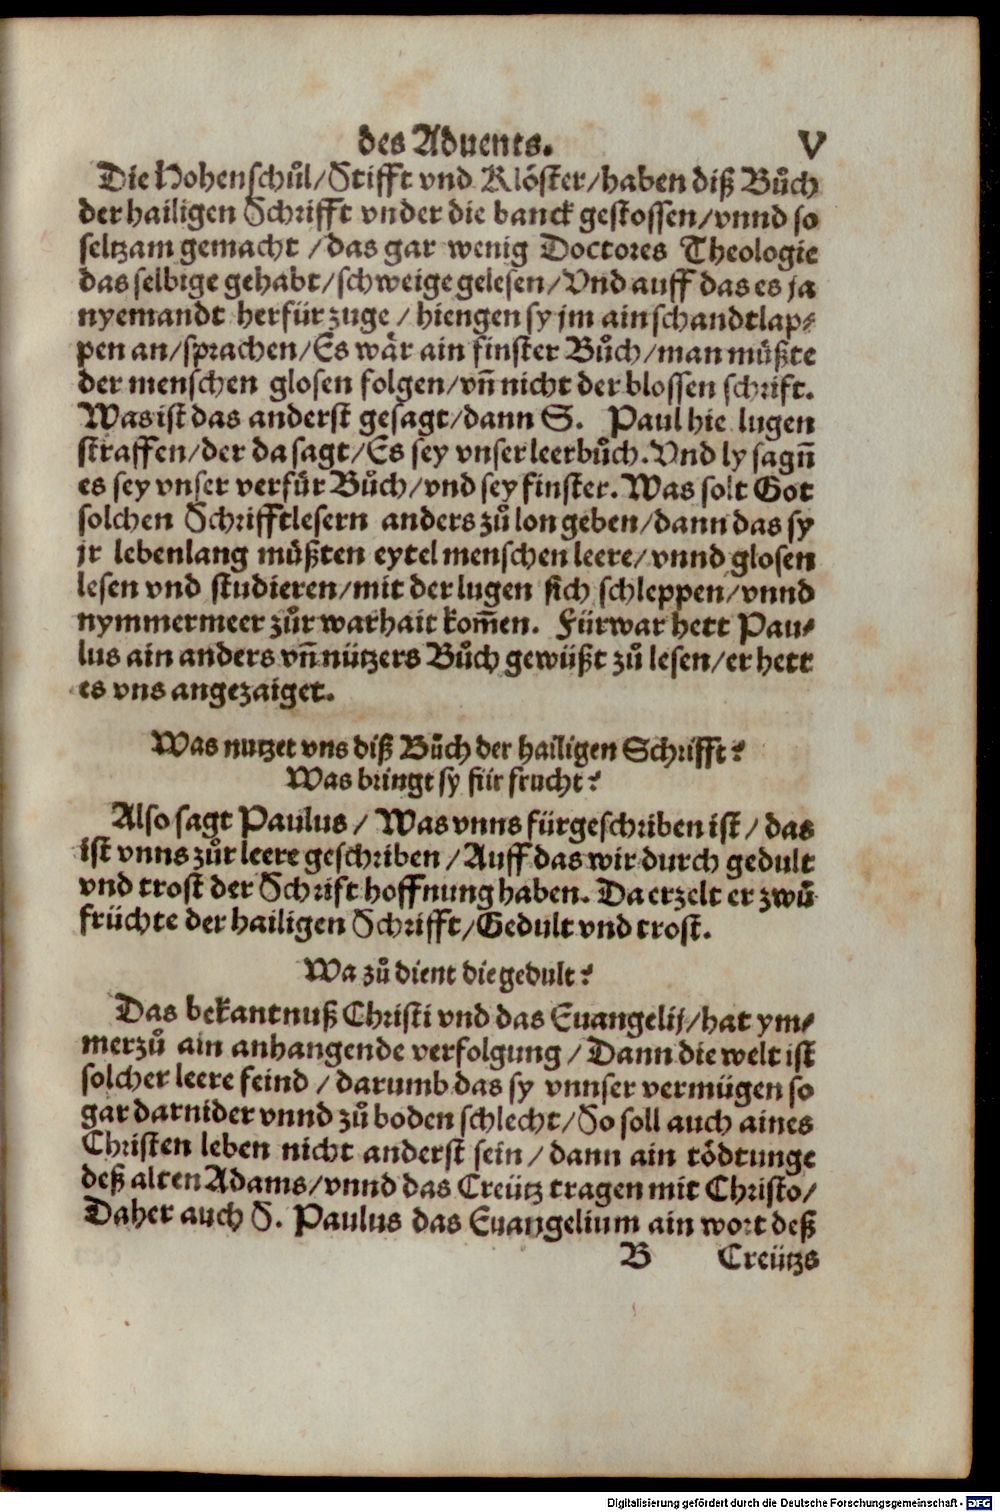 des Aduents. V
Die Hohenschůl/Stifft vnd Klöster/haben diß Bůch
der hailigen Schrifft vnder die banck gestossen/vnnd so
seltzam gemacht /das gar wenig Doctores Theologie
das selbige gehabt/schweige gelesen/Vnd auff das es ja
nyemandt herfür zuge / hiengen sy jm ain schandtlap⸗
pen an/sprachen/Es wår ain finster Bůch/man müßte
der menschen glosen folgen/vñ nicht der blossen schrift.
Was ist das anderst gesagt/dann S. Paul hie lugen
straffen/der da sagt/Es sey vnser leerbůch. Vnd ly sagñ
es sey vnser verfůr Bůch/vnd sey finster. Was solt Got
solchen Schrifftlesern anders zů lon geben/dann das sy
jr lebenlang müßten eytel menschen leere/vnnd glosen
lesen vnd studieren/mit der lugen sich schleppen/vnnd
nymmermeer zůr warhait kom̃en. Fürwar hett Pau⸗
lus ain anders vñ nützers Bůch gewüßt zů lesen/er hett
es vns angezaiget.
Was nutzet vns diß Bůch der hailigen Schrifft?
Was bringt sy für frucht?
Also sagt Paulus / Was vnns fürgeschriben ist / das
ist vnns zůr leere geschriben / Auff das wir durch gedult
vnd trost der Schrift hoffnung haben. Da erzelt er zwů
früchte der hailigen Schrifft/Gedult vnd trost.
Wa zů dient die gedult?
Das bekantnuß Christi vnd das Euangelij/hat ym⸗
merzů ain anhangende verfolgung / Dann die welt ist
solcher leere feind / darumb das sy vnnser vermügen so
gar darnider vnnd zů boden schlecht/So soll auch aines
Christen leben nicht anderst sein / dann ain tödtunge
deß alten Adams/vnnd das Creütz tragen mit Christo/
Daher auch S. Paulus das Euangelium ain wort deß
B Creützs
Digitalisierung gefördert durch die Deutsche Forschungsgemeinschaft - DFG